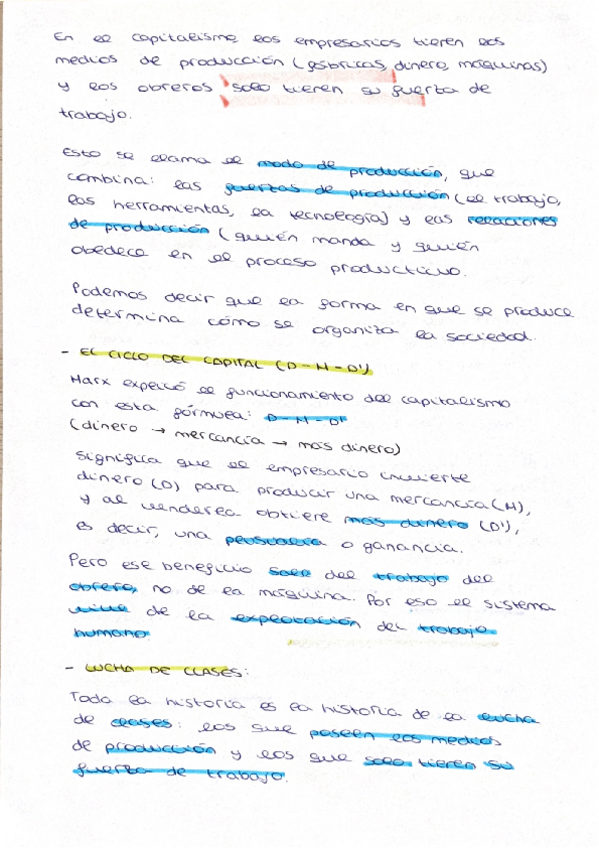 En el capitalismo, los empresarios tienen los
medios de producción (fábricas, dinero, máquinas)
y los obreros solo tienen su fuerza de
trabajo.
Esto se llama el modo de producción, que
combina: las fuerzas de producción (el trabajo,
las herramientas, la tecnología) y las relaciones
de producción (quién manda y quién
obedece en el proceso productivo.
Podemos decir que la forma en que se produce
determina cómo se organiza la sociedad.
- EL CICLO DEL CAPITAL (D - M - D')
Marx explicó el funcionamiento del capitalismo
con esta fórmula: D - M - D'
(dinero → mercancía → más dinero)
Significa que el empresario invierte
dinero (D) para producir una mercancía (M),
y al venderla obtiene más dinero (D'),
es decir, una plusvalía o ganancia.
Pero ese beneficio sale del trabajo del
obrero, no de la máquina. Por eso el sistema
vive de la explotación del trabajo
humano
- LUCHA DE CLASES:
Toda la historia es la historia de la lucha
de clases: los que poseen los medios
de producción y los que solo tienen su
fuerza de trabajo.